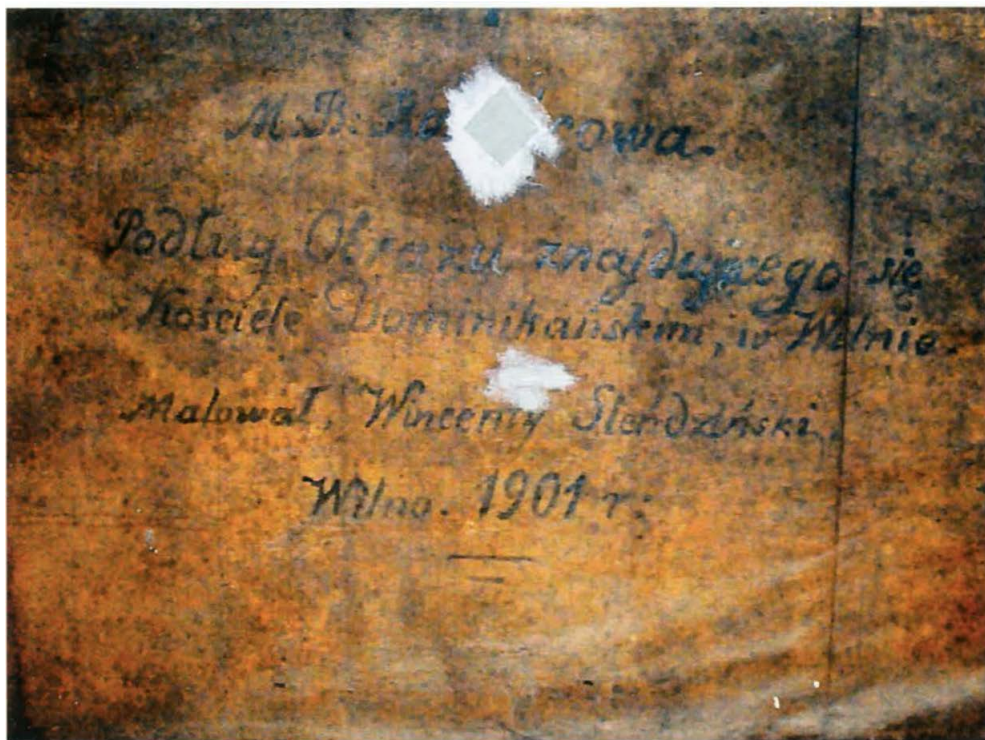 M. B. 
Podług Obrazu znajdującego się
w Kościele Dominikańskim, w Wilnie.
Malował, Wincenty Sleńdziński,
Wilno. 1901 r: